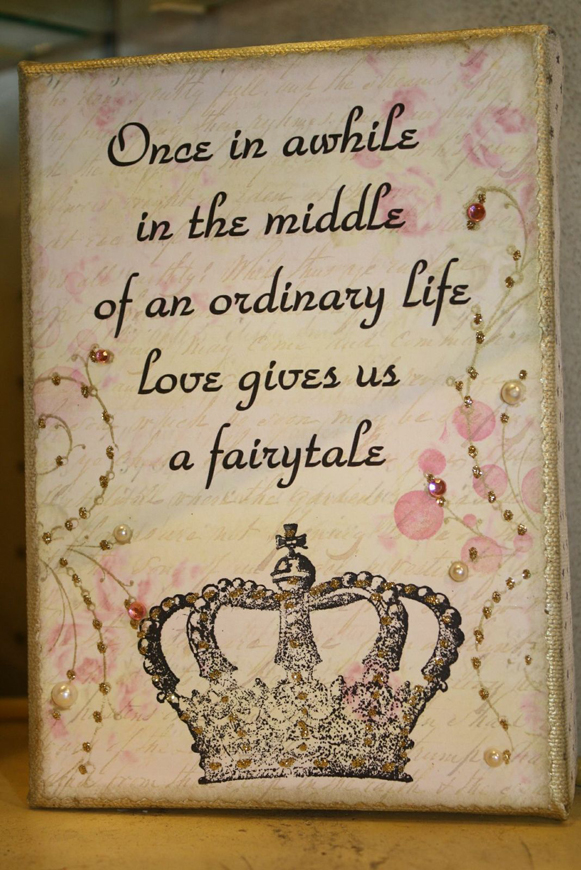 Once in awhile
in the middle
of an ordinary life
love gives us
a fairytale